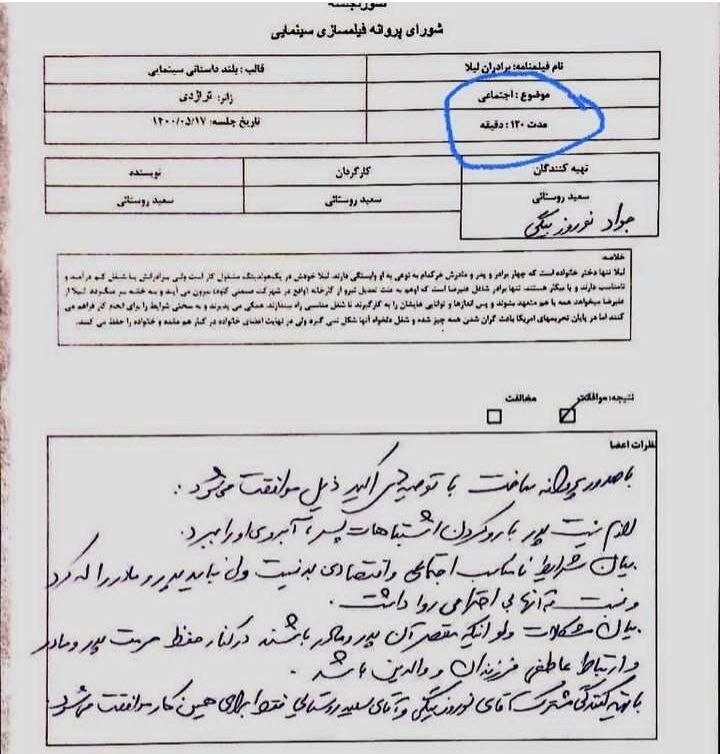 صورتجلسه
شورای پروانه فیلمسازی سینمایی
نام فیلمنامه: برادران لیلا
قالب: بلند داستانی سینمایی
موضوع: اجتماعی
ژانر: تراژدی
مدت ۱۲۰: دقیقه
تاریخ جلسه: ۱۴۰۰/۰۵/۱۷
تهیه کنندگان
کارگردان
نویسنده
سعید روستائی
سعید روستائی
سعید روستائی
جواد نوروزبیگی
خلاصه
لیلا تنها دختر خانواده است که چهار برادر و پدر و مادرش هرکدام به نوعی به او وابستگی دارند. لیلا خودش در یک هولدینگ مشغول کار است ولی برادرانش یا شغل کم درآمد و
نامناسب دارند و یا بیکار هستند. تنها برادر شاغل علیرضا است که اوهم به علت تعدیل نیرو از کارخانه (واقع در شهرک صنعتی بیرون می آیند و به خانه بر میگردد. لیلا از
علیرضا میخواهد همه با هم متعهد بشوند و پس اندازها و توانایی هایشان را به کارگیرند تا شغل مناسبی راه بیندازند. همگی می پذیرند و به سختی شرایط را برای انجام کار فراهم می
کنند اما در پایان تحریمهای امریکا باعث گران شدن همه چیز شده و شغل دلخواه آنها شکل نمی گیرد ولی در نهایت اعضای خانواده در کنار هم مانده و خانواده را حفظ می کنند.
نتیجه: موافقت
مخالفت
نظرات اعضا
با صدور پروانه ساخت با توصیه های اکید ذیل موافقت می شود:
لازم نیست پدر با رو کردن اشتباهات پسر، آبروی او را ببرد.
بیان شرایط نامناسب اجتماعی و اقتصادی بد نیست ولی نباید پدر و مادر را له کرد
و نسبت به آنها بی احترامی روا داشت.
بیان مشکلات ولو اینکه مقصر آن پدر و مادر باشند در کنار حفظ حرمت پدر و مادر
و ارتباط عاطفی فرزندان و والدین باشد.
با تهیه کنندگی مشترک آقای نوروزبیگی و آقای سعید روستایی فقط برای همین کار موافقت می شود.